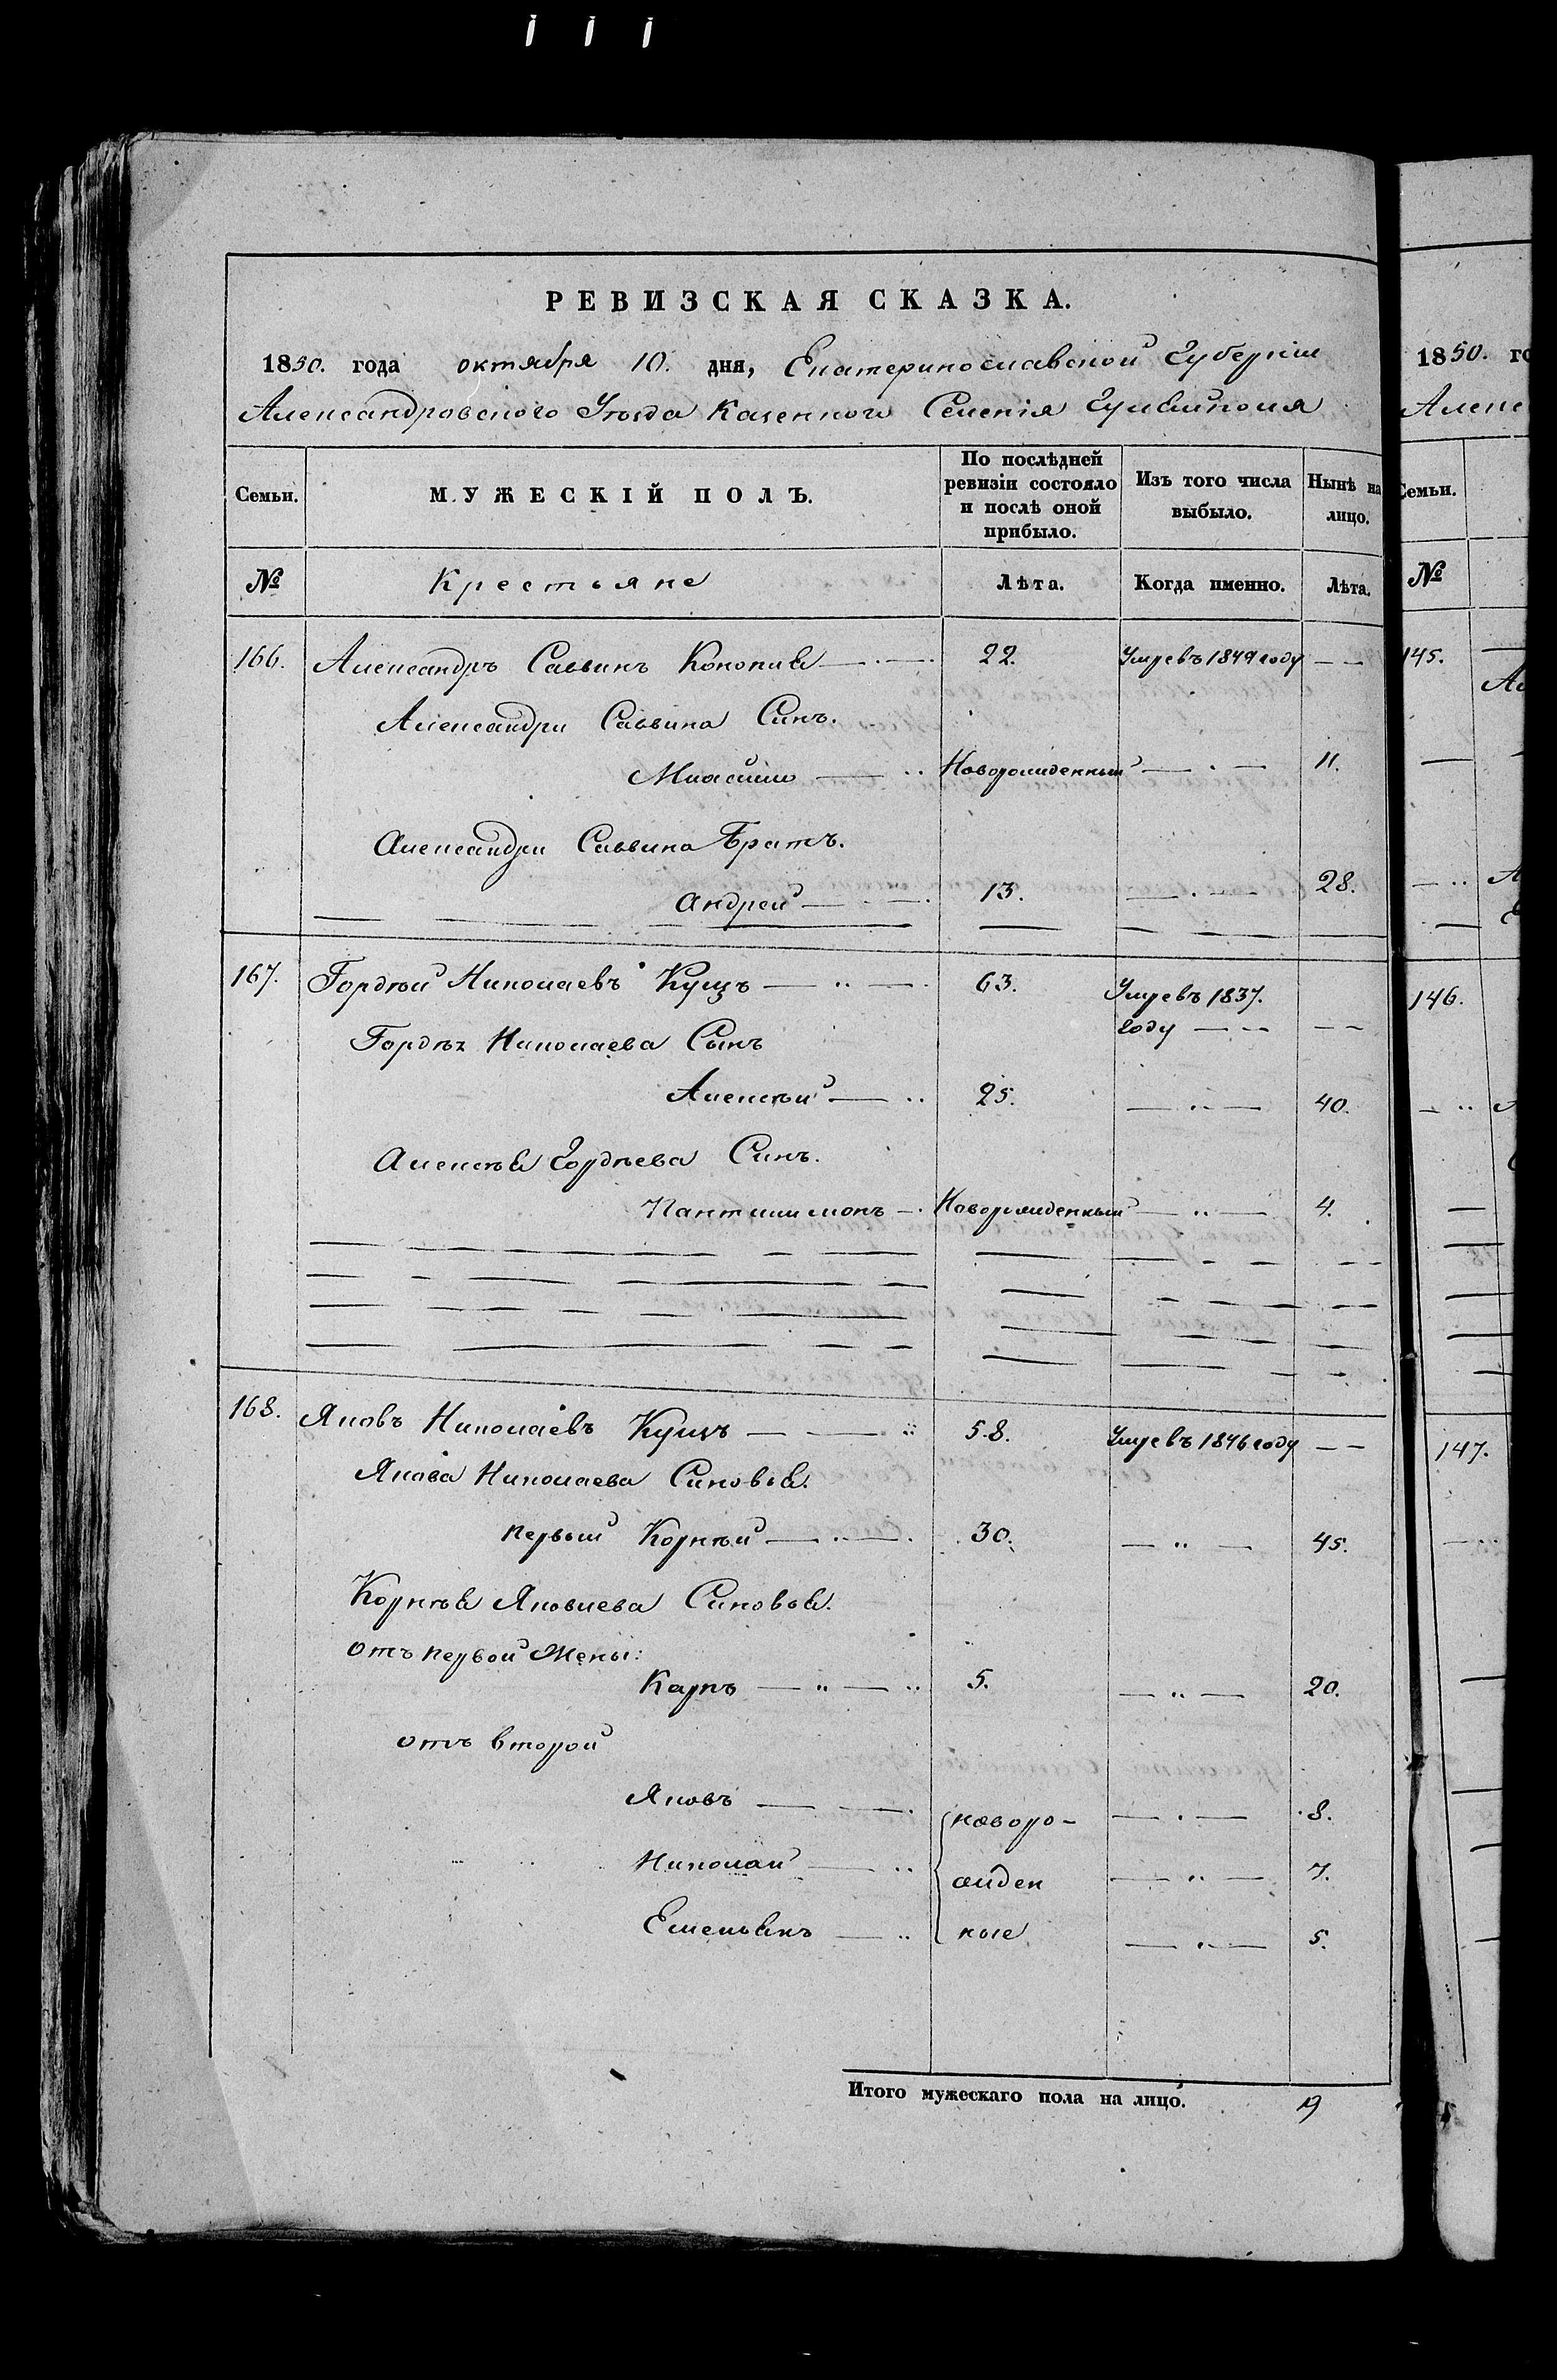 РЕВИЗСКАЯ СКАЗКА.
1850. года октября 10. дня, Екатеринославской Губерніи
Александровского Уѣзда Казенного Селенія Гуляйполя
Семьи. МУЖЕСКІЙ ПОЛЪ. По послѣдней ревизіи состояло и послѣ оной прибыло. Изъ того числа выбыло. Нынѣ на лицо.
№ Крестьяне Лѣта. Когда именно. Лѣта.
166. Александръ Саввинъ Конопля 22. Умревъ 1849 году — —
Александра Саввина Синъ.
Новорожденный — . — 11.
Александра Саввина Братъ.
Андрей 13. — . — 28.
167. Гордѣй Николаевъ Кущъ 63. Умревъ 1837. году — —
Гордѣя Николаева Сынъ
Алексѣй 25. — .. — 40.
Алексѣя Гордѣева Синъ.
Пантилимонъ Новорожденный — .. — 4.
168. Яковъ Николаевъ Кущъ 58. Умревъ 1846 году — —
Якова Николаева Синовья.
Первый Корнѣй 30. — .. — 45.
Корнѣя Яковлева Синовья.
отъ первой Жены:
Карпъ — .. — 5. — .. — 20.
отъ второй
Яковъ новоро- — . — 8.
Николай жден — .. — 7.
Емельянъ ные — . — 5.
Итого мужескаго пола на лицо. 9
1850. го
Алекс
Семьи.
№
145.
146.
147.